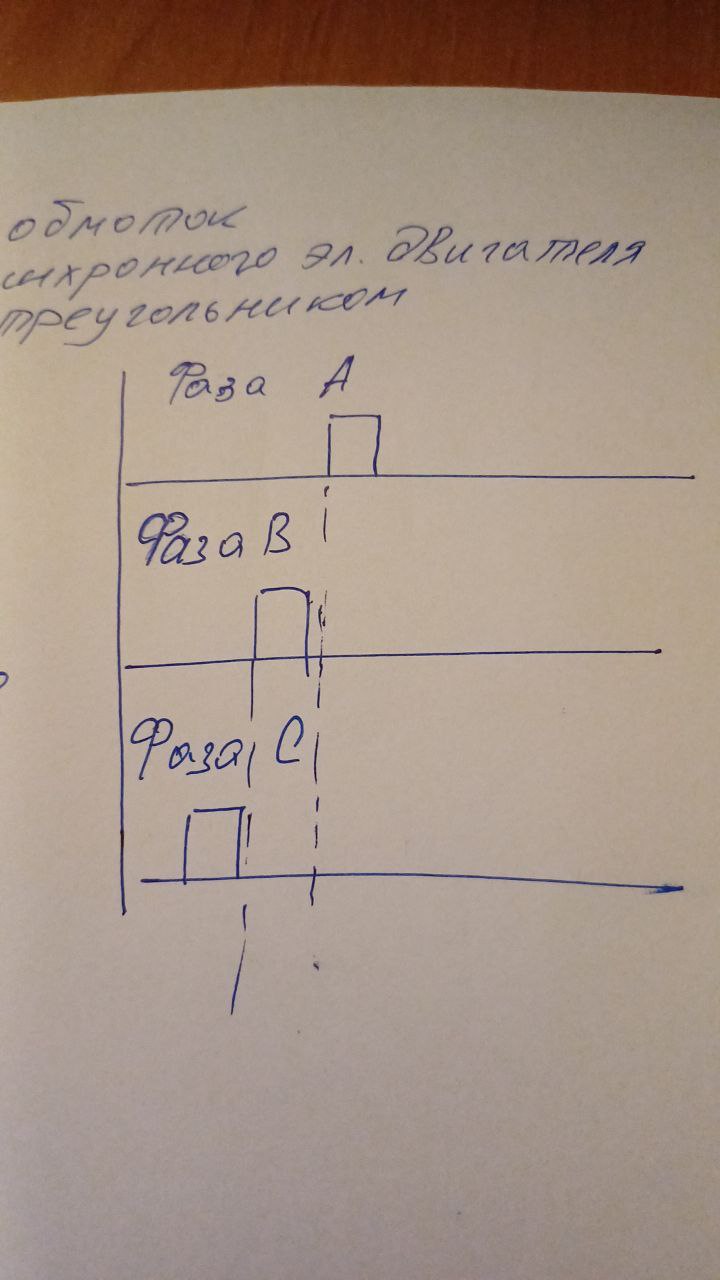 обмоток
инхронного эл. двигателя
треугольником
Фаза A
Фаза B
Фаза C